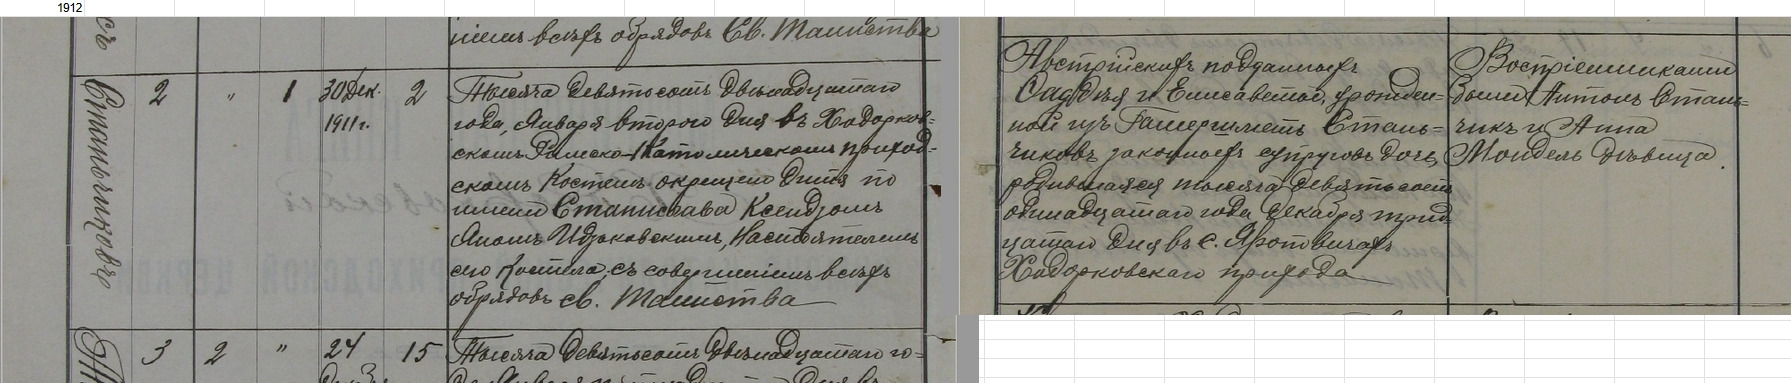 1912
ніемъ всѣхъ обрядовъ Св. Таинства
Станьчиковъ
2 " 1 30 Дек. 1911 г. 2
Тысяча девятьсотъ двѣнадцатаго
года, Января второго дня въ Ходорков-
скомъ Римско-Католическомъ приход-
скомъ Костелѣ окрещено дитя по
имени Станислава Ксендзомъ
Яномъ Идзьковскимъ, Настоятелемъ
сего Костела, съ совершеніемъ всѣхъ
обрядовъ св. Таинства
Австрійскихъ подданныхъ
и Елисаветы, урожден-
ной изъ Стань-
чиковъ законныхъ супруговъ дочь,
родившаяся тысяча девятьсотъ
одинадцатаго года Декабря трид-
цатаго дня въ с. Яротвичахъ
Ходорковскаго прихода
Воспріемниками
были Антонъ Стань-
чикъ и Анна
Мондель дѣвица.
3 2 " 24 15
Тысяча девятьсотъ двѣнадцатаго го-